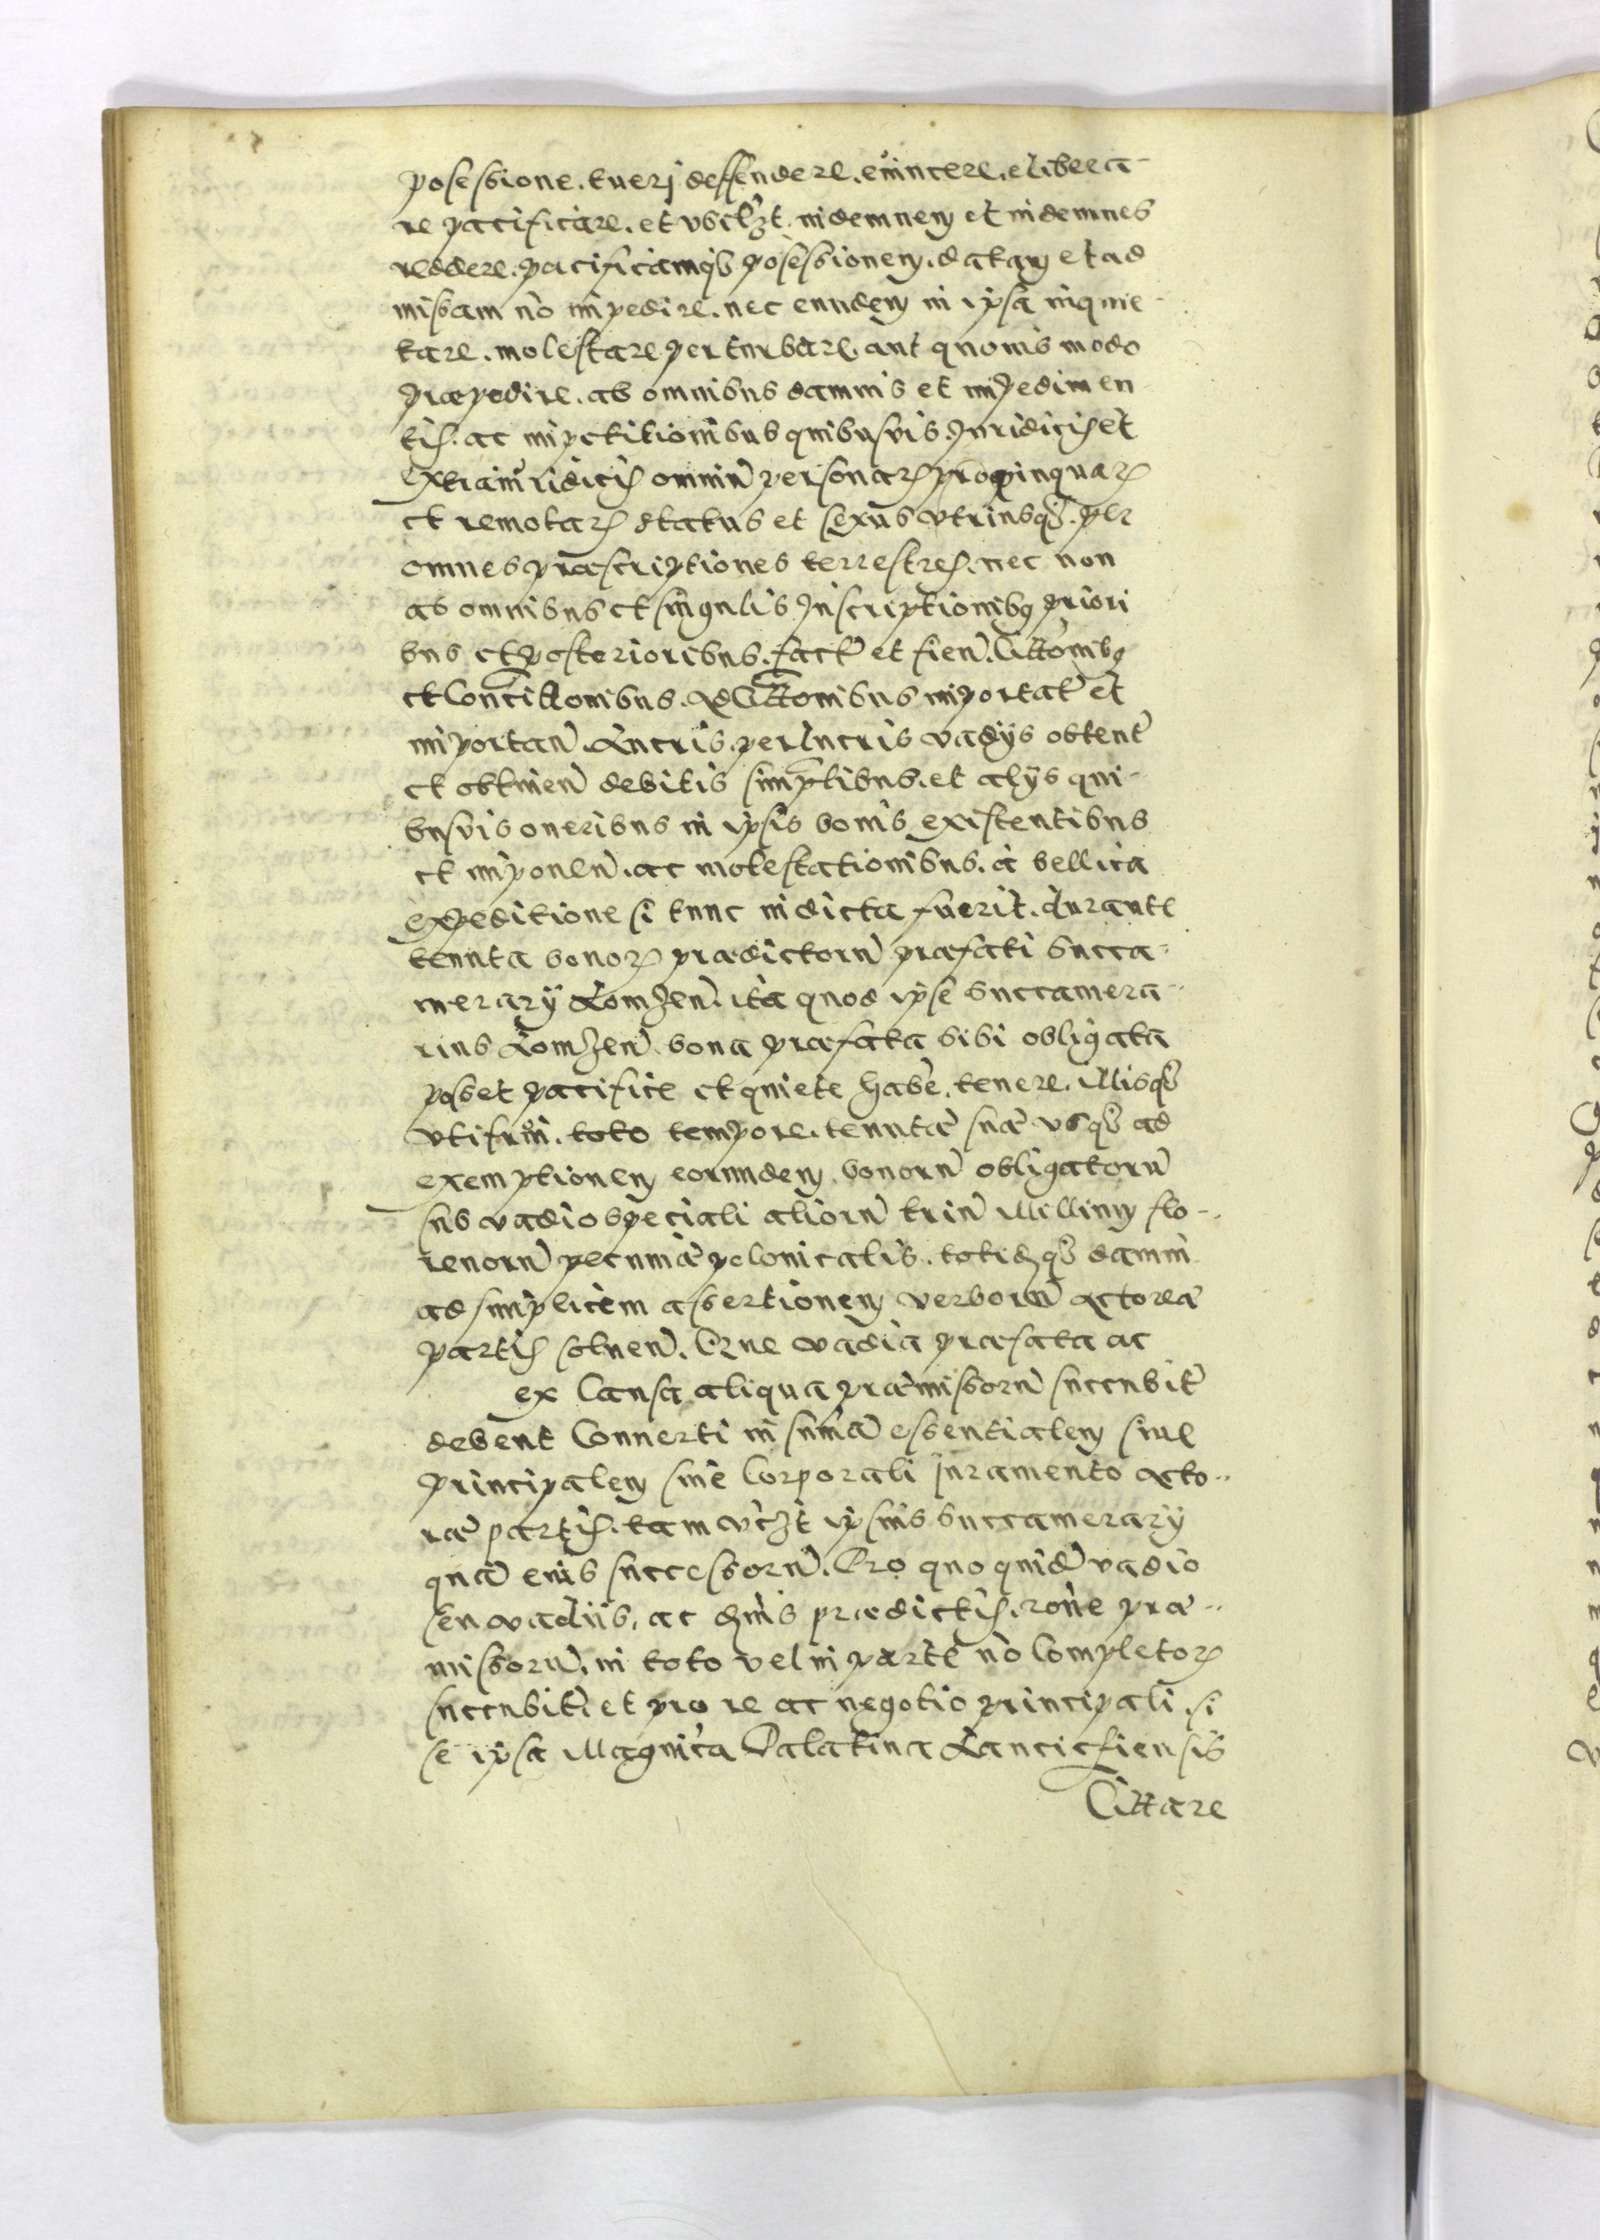 posessione. tuerj deffendere. euincere. elibera-
re pacificare. et vbilzt. indemnem et indemnes
reddere. pacificamqꝫ posessionem. datam et ad
missam nō impedire. nec eundem in ipsa inquie-
tare. molestare perturbare, aut quouis modo
præpedire. ab omnibus damnis et impedimen
tis. ac impetitionibus quibusvis. Juridicis et
extraiuridicis omniū personarꝫ propinquarꝫ
et remotarꝫ status et sexus vtriusqꝫ. per
omnes præscriptiones terrestres. nec non
ab omnibus et singulis Inscriptionibꝫ priori
bus et posterioribus. fact̃ et fieñ. Citt̃onibꝫ
et Concitt̃onibus. Adcitt̃onibus importat̃ et
importañ. Lucris. perlucris vadijs obtent̃
et obtineñ debitis simplibus. et alijs qui-
busvis oneribus in ipsis bonis existentibus
et imponeñ. ac molestationibus. à bellica
expeditione si tunc indicta fuerit. durante
tenuta bonorꝫ prædictorū præfati Succa-
merarij Lomzeñ. ita quod ipse Succamera-
rius Lomzeñ. bona præfata sibi obligata
posset pacifice et quiete habē. tenere. illisqꝫ
vtifrui. toto tempore. tenutæ suæ vsqꝫ ad
exemptionem eorundem bonorū obligatorū
sub vadio speciali aliorū triū Millium flo-
renorū pecuniæ polonicalis. totidqꝫ damni
ad simplicem assertionem verborū actoreæ
partis soluen̄. Quæ vadia præfata ac
ex Causa aliqua præmissorū succubit̃
debent Conuerti in sum̄ā essentialem siue
principalem sine Corporali Juramento acto-
reæ partis. tam vĩzt ipsius Succamerarij
quā eius successorū. Pro quo quidē vadio
seu vadiis, ac dm̄is prædictis. rōne præ-
missorū. in toto vel in parte nō Completorꝫ
succubit̃ et pro re ac negotio principali. si
se ipsa Magnifica Palatina Lanciciensis
Cittare